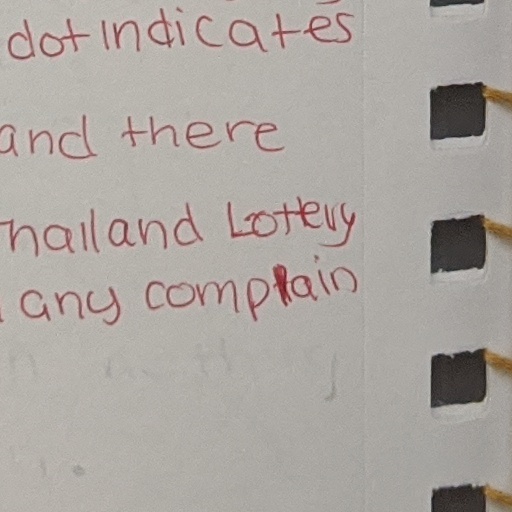 dot indicates
and there
hailand Lottery
any complain